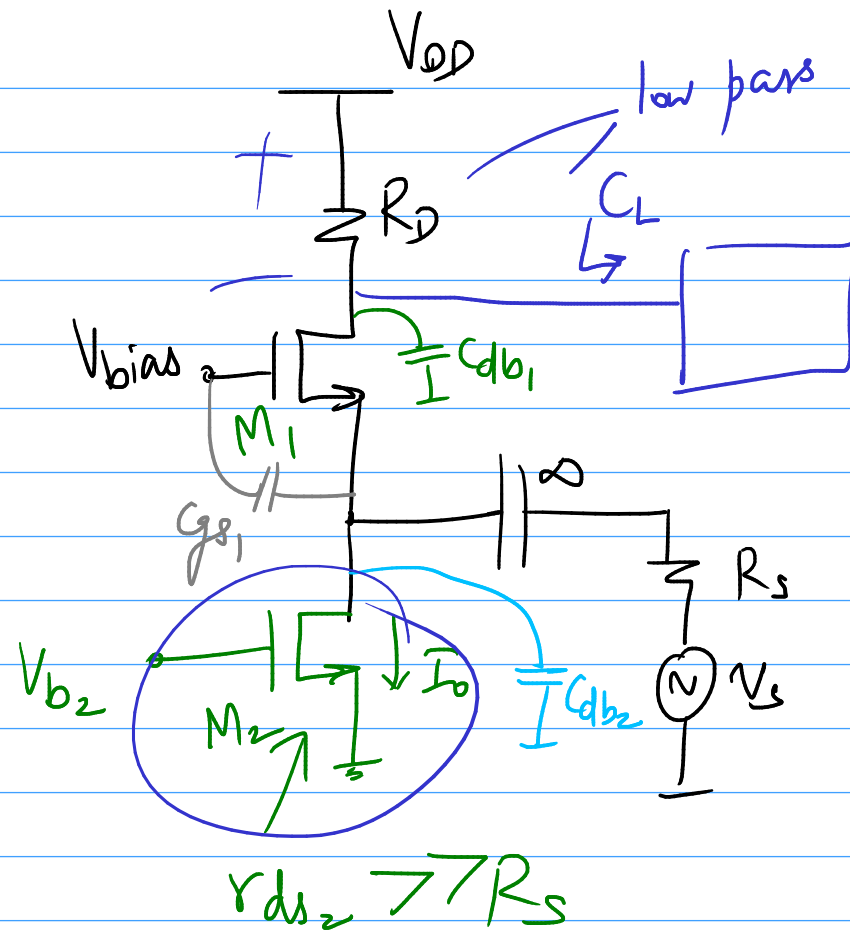 V_DD
low pass
+
R_D
C_L
−
V_bias
C_db1
M_1
∞
C_gs1
R_s
V_b2
I_0
v_s
C_db2
M_2
r_ds2 >> R_s